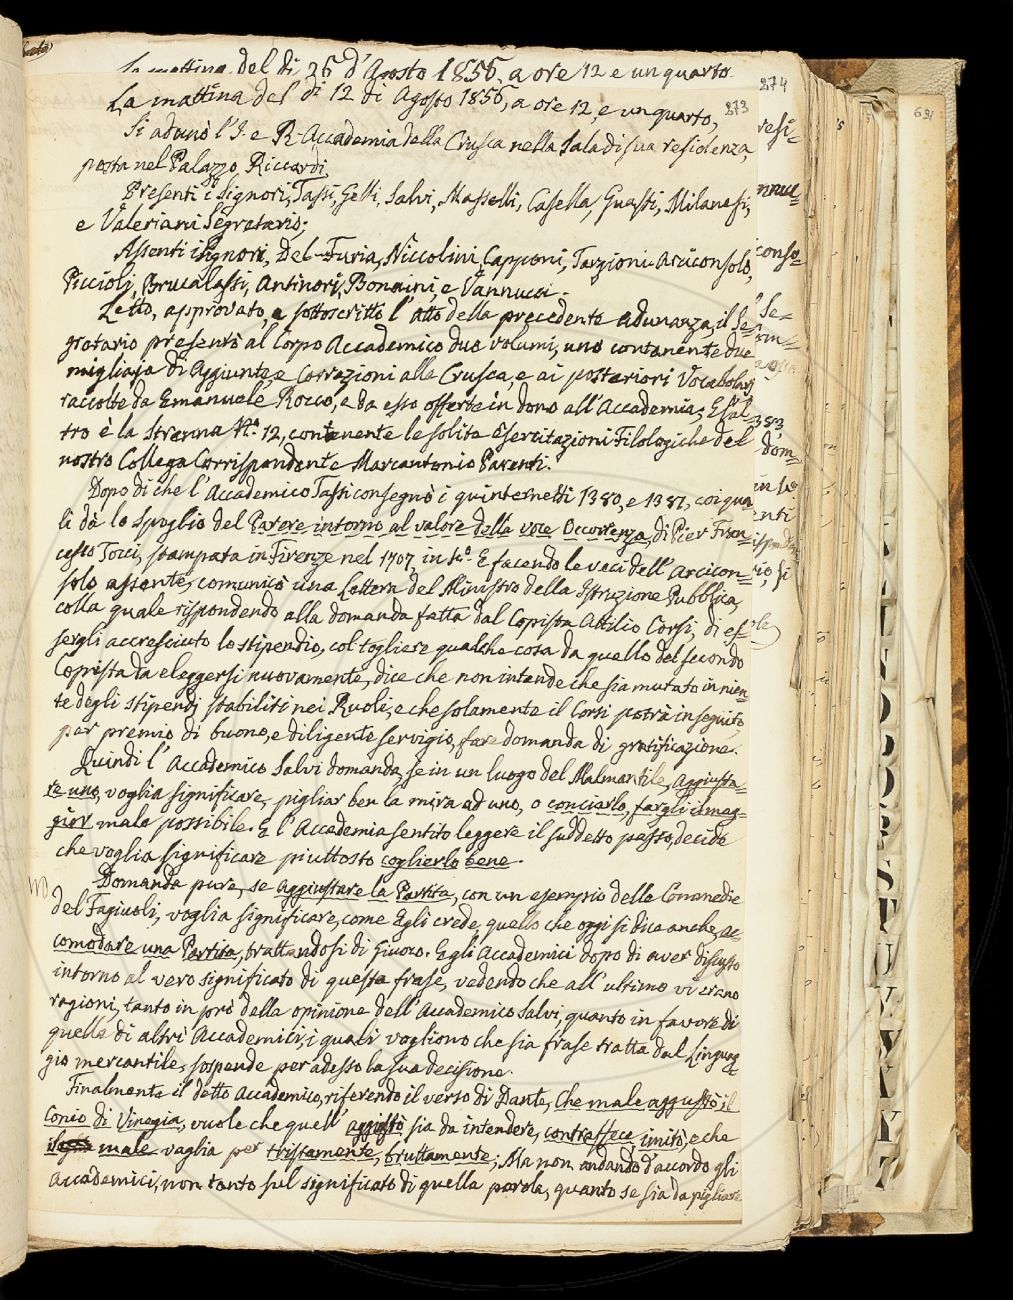 La mattina del dì 26 d'Agosto 1856, a ore 12 e un quarto.
274
La mattina del dì 12 di Agosto 1856, a ore 12, e un quarto,
273
Si adunò l'I. e R. Accademia della Crusca nella Sala di sua residenza,
posta nel Palazzo Riccardi.
Presenti i Signori, Tassi, Gelli, Salvi, Masselli, Casella, Guasti, Milanesi,
e Valeriani Segretario;
Assenti i Signori, Del-Furia, Niccolini, Capponi, Targioni Arciconsolo,
Piccioli, Brucalassi, Antinori, Bonaini, e Vannucci.
Letto, approvato, e sottoscritto l'atto della precedente adunanza, il Se=
gretario presentò al Corpo Accademico due volumi, uno contenente due
migliaja di Aggiunte, e Correzioni alla Crusca, e ai posteriori Vocabolarj
raccolte da Emanuele Rocco, e da esso offerte in dono all'Accademia; E l'al
tro è la Strenna N.º 12, contenente le solite Esercitazioni Filologiche del
nostro Collega Corrispondente Marcantonio Parenti.
Dopo di che l'Accademico Tassi consegnò i quinternetti 1380, e 1381, coi qua
li dà lo Spoglio del Parere intorno al valore della voce Occorrenza, di Pier Fran=
cesco Tocci, stampata in Firenze nel 1707, in 4.º E facendo le veci dell'Arcicon=
solo assente, comunicò una Lettera del Ministro della Istruzione Pubblica,
colla quale rispondendo alla domanda fatta dal Copista Attilio Corsi, di es=
sergli accresciuto lo stipendio, col togliere qualche cosa da quello del secondo
Copista da eleggersi nuovamente, dice che non intende che sia mutato in nien=
te degli stipendj stabiliti nei Ruoli, e che solamente il Corsi potrà in seguito,
per premio di buono, e diligente servigio, fare domanda di gratificazione.
Quindi l'Accademico Salvi domanda, se in un luogo del Malmantile, Aggiusta=
re uno, voglia significare, pigliar ben la mira ad uno, o conciarlo, fargli il mag=
gior male possibile. E l'Accademia sentito leggere il suddetto passo, decide
che voglia significare piuttosto coglierlo bene.
Domanda pure, se aggiustare la Partita, con un esempio delle Commedie
del Fagiuoli, voglia significare, come Egli crede, quello che oggi si dice anche, Ac=
comodare una Partita, trattandosi di Giuoco. E gli Accademici dopo di aver discusso
intorno al vero significato di questa frase, vedendo che all'ultimo vi erano
ragioni, tanto in prò della opinione dell'Accademico Salvi, quanto in favore di
quella di altri Accademici, i quali vogliono che sia frase tratta dal Linguag
gio mercantile, sospende per adesso la sua decisione.
Finalmente il detto Accademico, riferendo il verso di Dante, Che male aggiustò il
Conio di Vinegia, vuole che quell'aggiustò sia da intendere, contraffece, imitò, e che
male vaglia per tristamente, bruttamente; Ma non andando d'accordo gli
Accademici, non tanto sul significato di quella parola, quanto se sia da pigliare